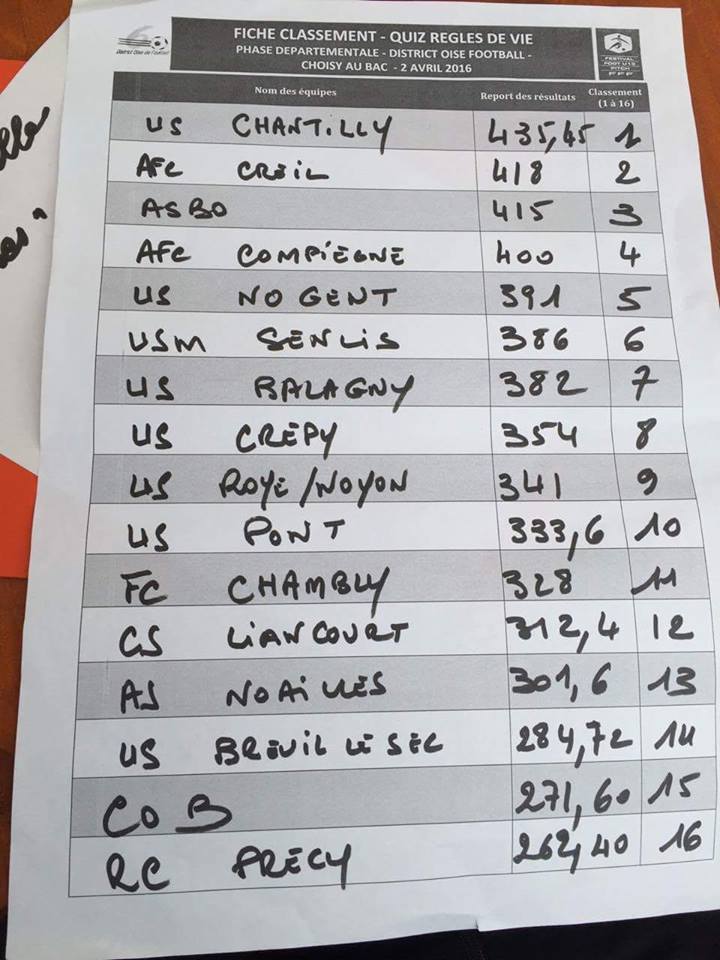 District Oise de Football
FICHE CLASSEMENT - QUIZ REGLES DE VIE
PHASE DEPARTEMENTALE - DISTRICT OISE FOOTBALL -
CHOISY AU BAC - 2 AVRIL 2016
FESTIVAL
FOOT U13
PITCH
FFF
Nom des équipes Report des résultats Classement (1 à 16)
US CHANTILLY 435,45 1
AFC CREIL 418 2
ASBO 415 3
AFC COMPIÈGNE 400 4
US NOGENT 391 5
USM SENLIS 386 6
US BALAGNY 382 7
US CREPY 354 8
US ROYE/NOYON 341 9
US PONT 333,6 10
FC CHAMBLY 328 11
CS LIANCOURT 312,4 12
AS NOAILLES 301,6 13
US BREUIL LE SEC 284,72 14
COB 271,60 15
RC PRECY 262,40 16